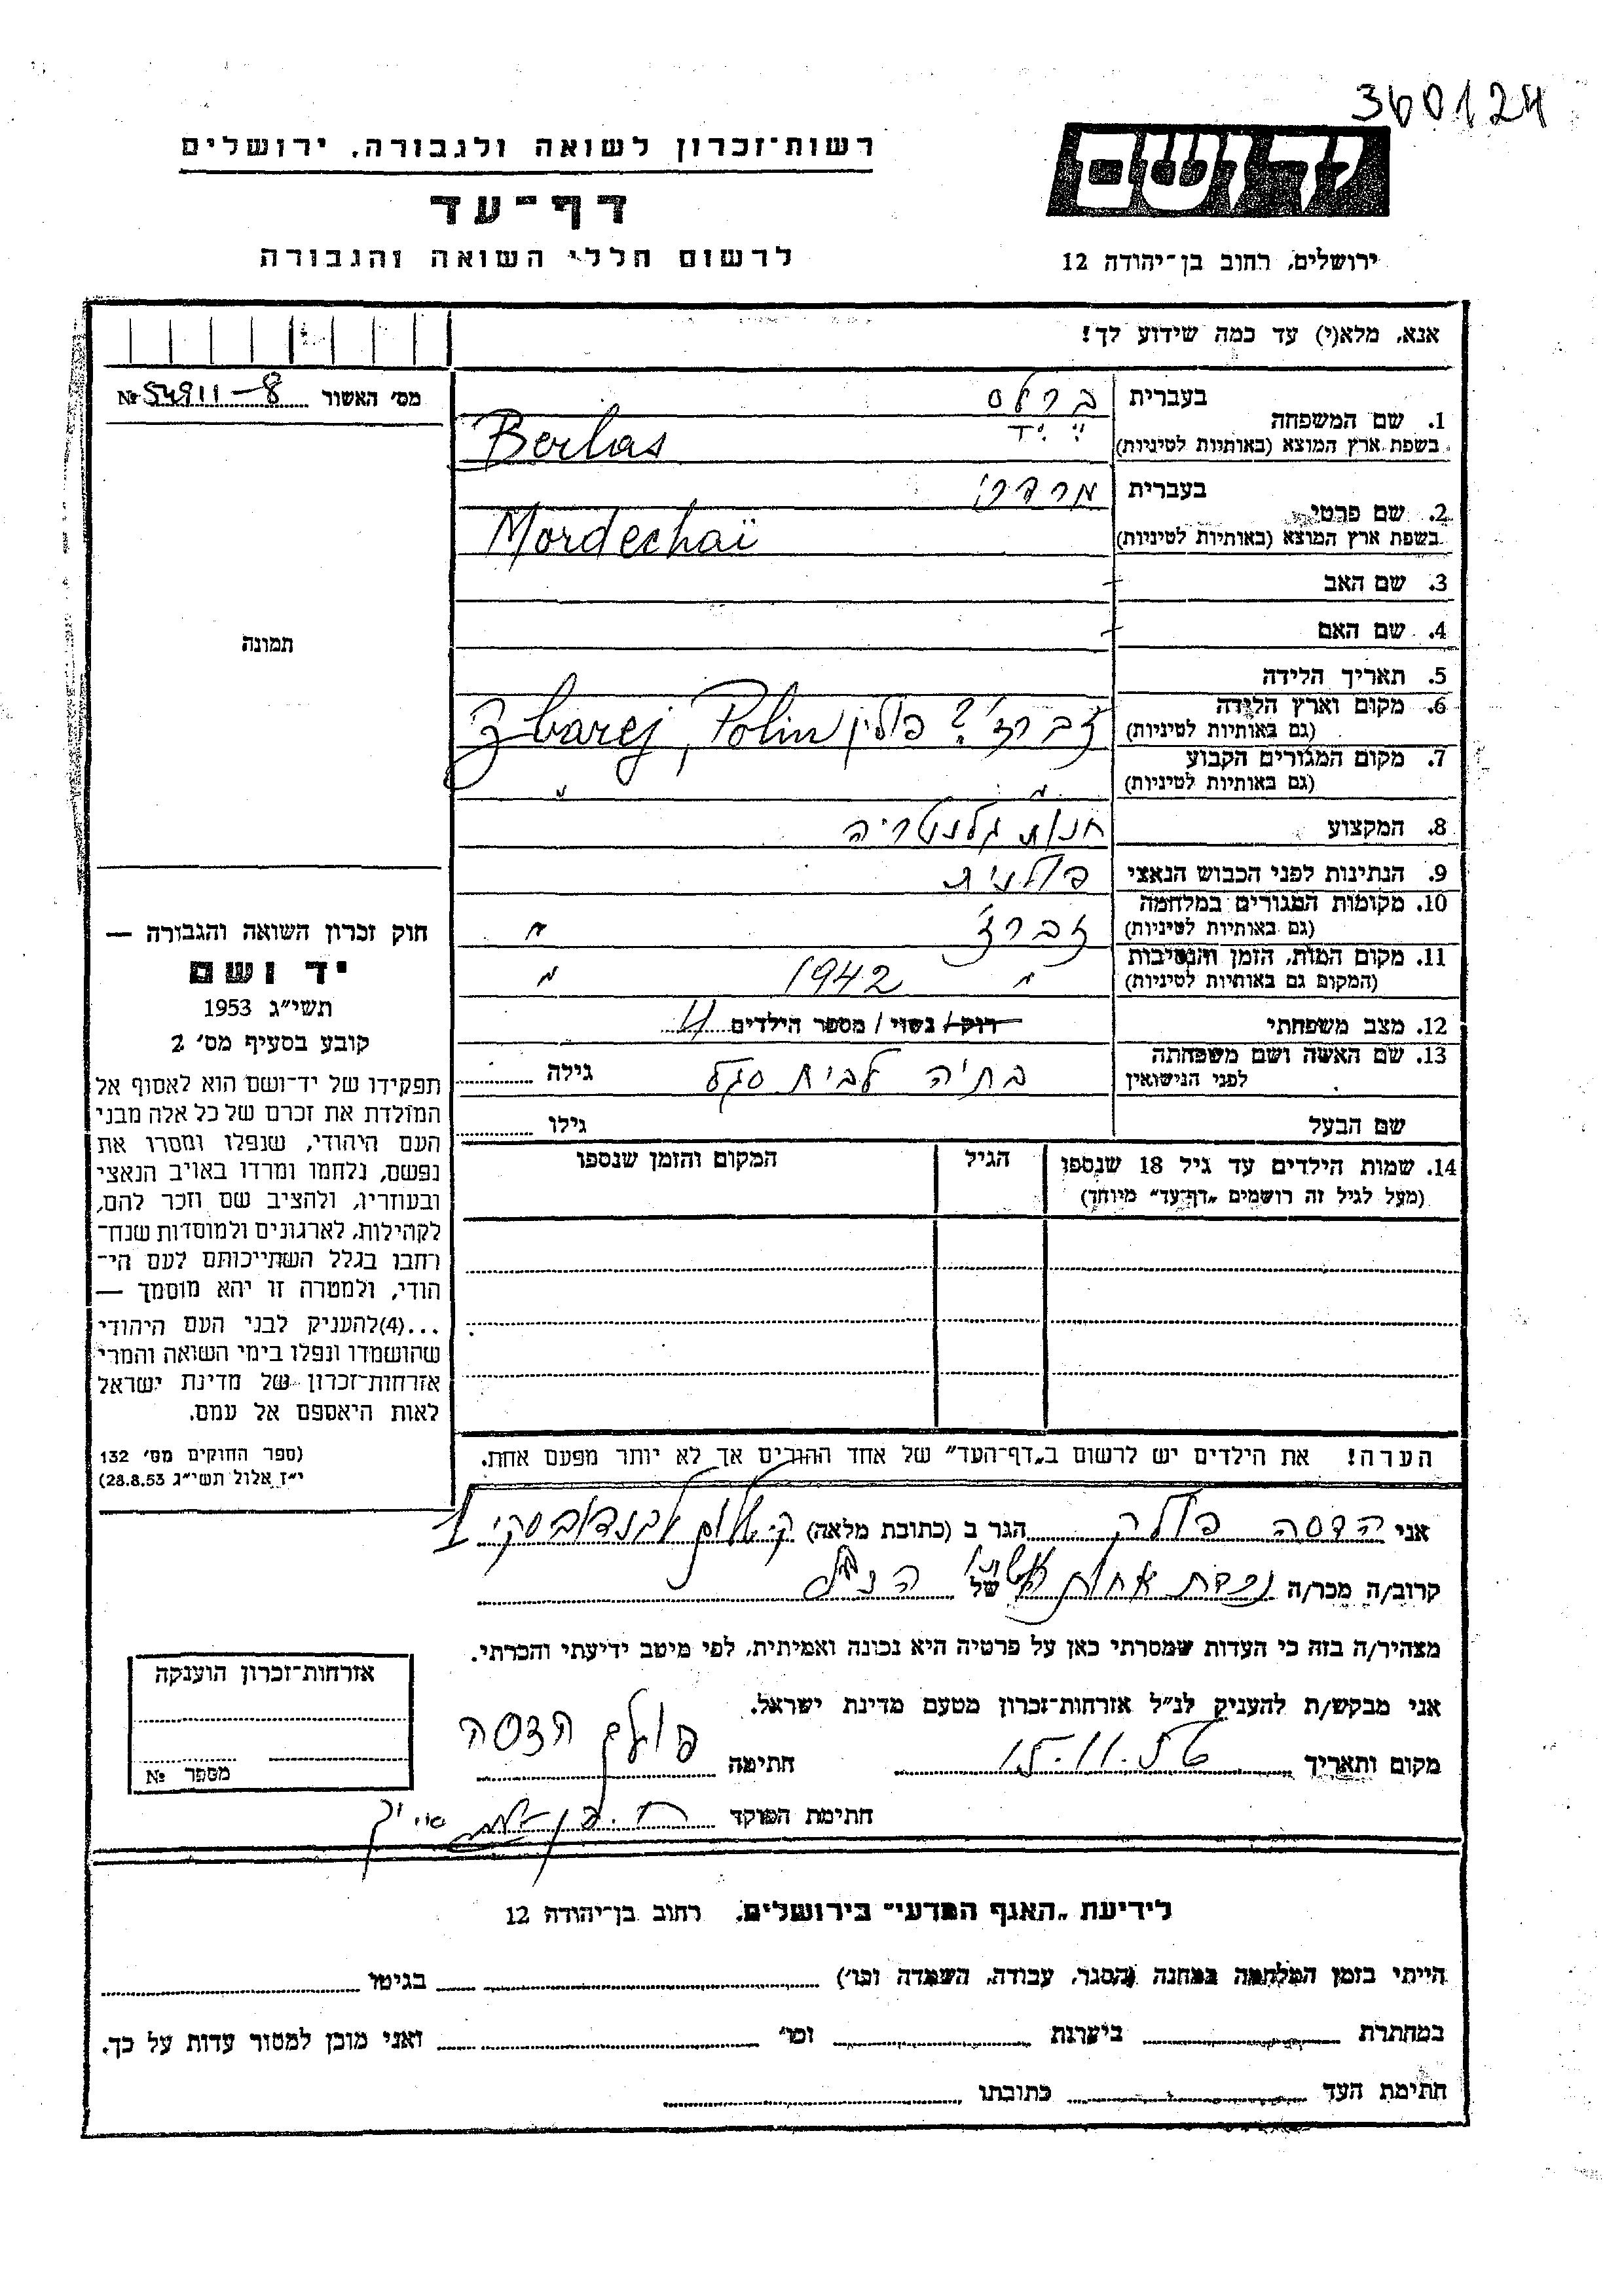 360124
רשות־זכרון לשואה ולגבורה, ירושלים
יד ושם
דף־עד
לרשום חללי השואה והגבורה
ירושלים, רחוב בן־יהודה 12
אנא, מלא(י) עד כמה שידוע לך!
מס׳ האשור №54911-8
1. שם המשפחה
בעברית ברלס
בשפת ארץ המוצא (באותיות לטיניות) Berlas
2. שם פרטי
בעברית מרדכי
בשפת ארץ המוצא (באותיות לטיניות) Mordechaï
3. שם האב
4. שם האם
5. תאריך הלידה
6. מקום וארץ הלידה
(גם באותיות לטיניות) זברז׳? פולין Zbarej, Polin
7. מקום המגורים הקבוע
(גם באותיות לטיניות) " "
8. המקצוע חנות גלנטריה
9. הנתינות לפני הכבוש הנאצי פולנית
10. מקומות המגורים במלחמה
(גם באותיות לטיניות) זברז׳ "
11. מקום המות, הזמן והנסיבות
(המקום גם באותיות לטיניות) " 1942 "
12. מצב משפחתי רוק/נשוי/מספר הילדים 4
13. שם האשה ושם משפחתה
לפני הנישואין בתיה לבית סגל גילה
שם הבעל גילו
14. שמות הילדים עד גיל 18 שנספו הגיל המקום והזמן שנספו
(מעל לגיל זה רושמים „דף־עד״ מיוחד)
הערה! את הילדים יש לרשום ב„דף־העד״ של אחד ההורים אך לא יותר מפעם אחת.
תמונה
חוק זכרון השואה והגבורה —
יד ושם
תשי״ג 1953
קובע בסעיף מס׳ 2
תפקידו של יד־ושם הוא לאסוף אל
המולדת את זכרם של כל אלה מבני
העם היהודי, שנפלו ומסרו את
נפשם, נלחמו ומרדו באויב הנאצי
ובעוזריו, ולהציב שם וזכר להם,
לקהילות, לארגונים ולמוסדות שנח־
רחבו בגלל השתייכותם לעם הי־
הודי, ולמטרה זו יהא מוסמך —
...(4)להעניק לבני העם היהודי
שהושמדו ונפלו בימי השואה והמרי
אזרחות־זכרון של מדינת ישראל
לאות היאספם אל עמם.
(ספר החוקים מס׳ 132
י״ז אלול תשי״ג 28.8.53)
אני הדסה פולק הגר ב (כתובת מלאה)
קרוב/ה מכר/ה נכדת אחות של הנ״ל
מצהיר/ה בזה כי העדות שמסרתי כאן על פרטיה היא נכונה ואמיתית, לפי מיטב ידיעתי והכרתי.
אני מבקש/ת להעניק לנ״ל אזרחות־זכרון מטעם מדינת ישראל.
מקום ותאריך חתימה פולק הדסה
חתימת הפוקד
אזרחות־זכרון הוענקה
מספר №
לידיעת „האגף המדעי״ בירושלים, רחוב בן־יהודה 12
הייתי בזמן המלחמה במחנה (הסגר, עבודה, השמדה וכו׳) בגיטו
במחתרת ביערות וכו׳ ואני מוכן למסור עדות על כך.
חתימת העד כתובתו